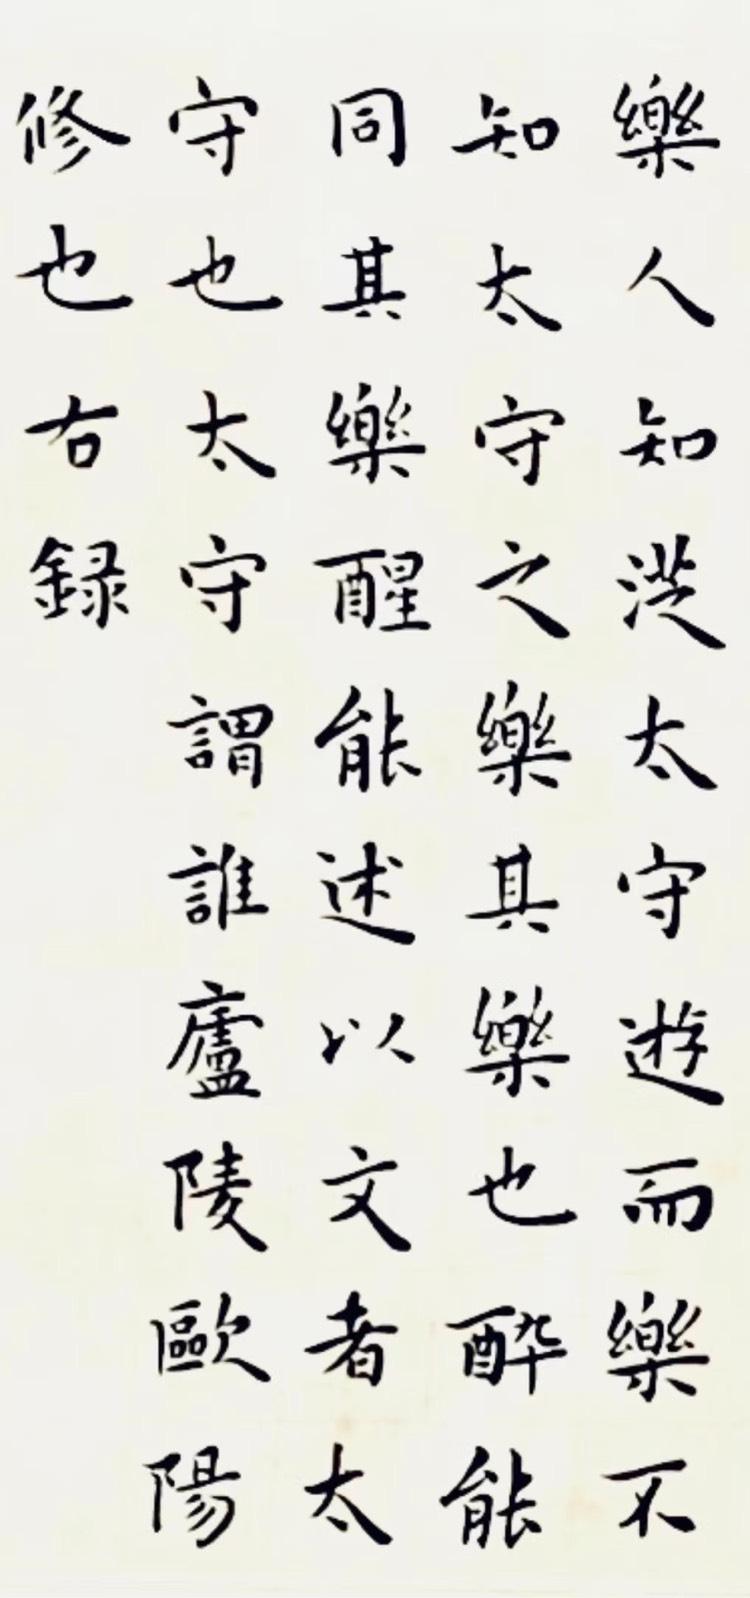 樂人知從太守遊而樂不
知太守之樂其樂也醉能
同其樂醒能述以文者太
守也太守謂誰廬陵歐陽
修也右錄